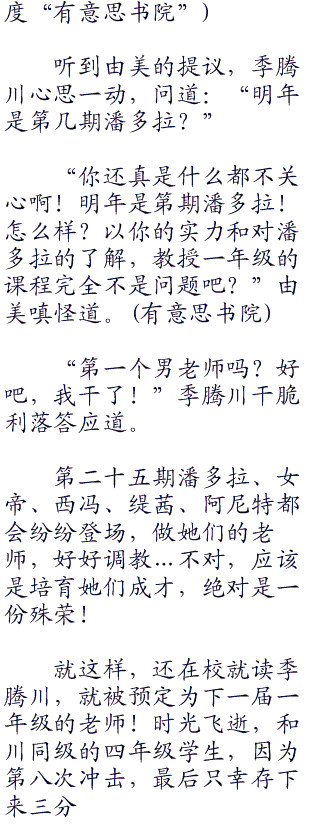 度“有意思书院”)
听到由美的提议，季腾
川心思一动，问道：“明年
是第几期潘多拉？”
“你还真是什么都不关
心啊！明年是第期潘多拉！
怎么样？以你的实力和对潘
多拉的了解，教授一年级的
课程完全不是问题吧？”由
美嗔怪道。(有意思书院)
“第一个男老师吗？好
吧，我干了！”季腾川干脆
利落答应道。
第二十五期潘多拉、女
帝、西冯、缇茜、阿尼特都
会纷纷登场，做她们的老
师，好好调教...不对，应该
是培育她们成才，绝对是一
份殊荣！
就这样，还在校就读季
腾川，就被预定为下一届一
年级的老师！时光飞逝，和
川同级的四年级学生，因为
第八次冲击，最后只幸存下
来三分